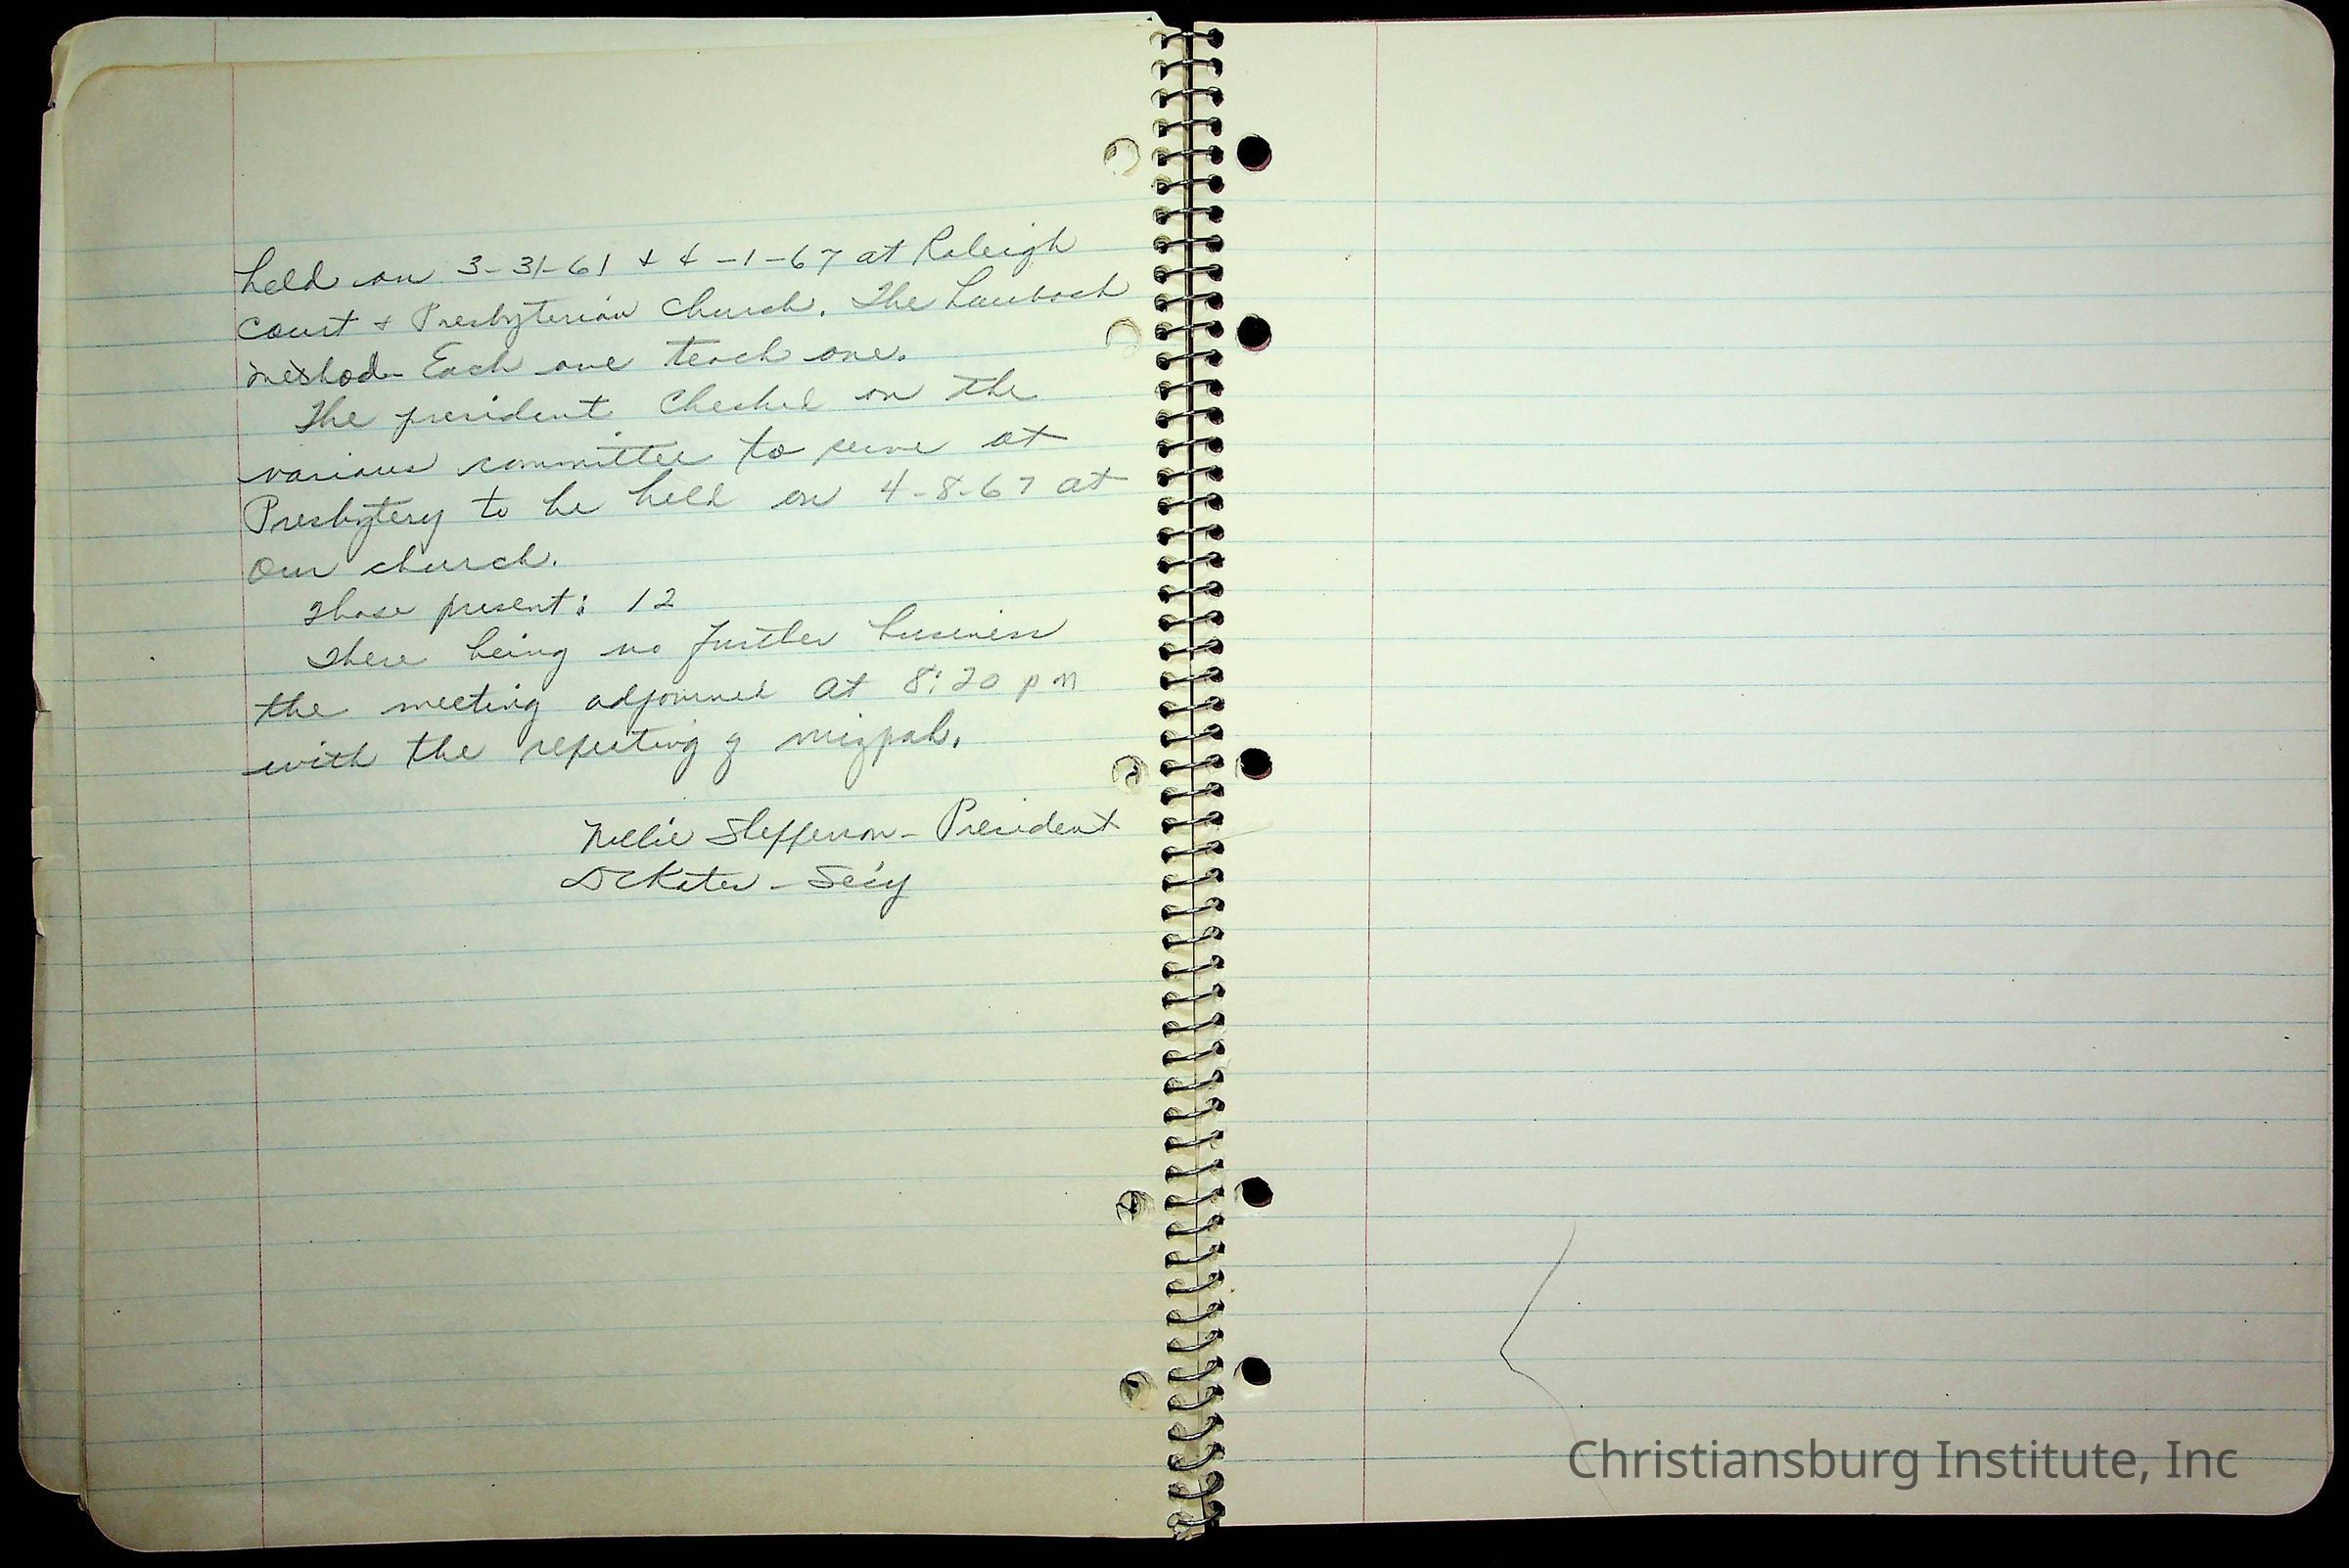 held on 3-31-61 & 4-1-67 at Raleigh
Court & Presbyterian Church. The Laubach
method - Each one teach one.
The president checked on the
various committee to serve at
Presbytery to be held on 4-8-67 at
Our church.
Those present: 12
There being no further business
the meeting adjourned at 8:20 pm
with the repeating of mizpah.
Nellie - President
Sec'y
Christiansburg Institute, Inc